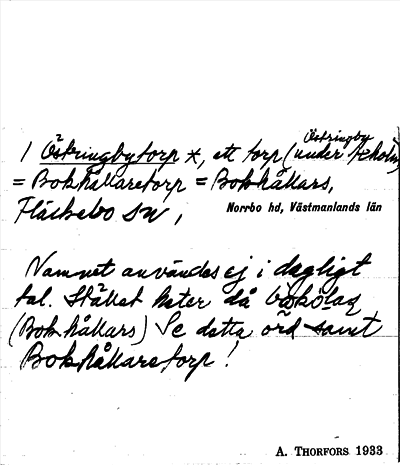 Östringby
1 Östringbytorp *, ett torp (under Ekholm)
= Bokhållaretorp = Bokhållars,
Fläckebo sn,
Norrbo hd, Västmanlands län
Namnet användes ej i dagligt
tal. Stället heter då
(Bokhållars) Se detta ord samt
Bokhållaretorp!
A. THORFORS 1933